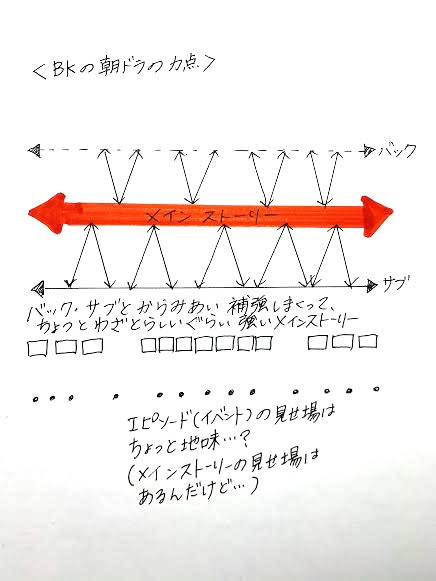 ＜BKの朝ドラの力点＞
バック
メインストーリー
サブ
バック・サブとからみあい補強しまくって、
ちょっとわざとらしいぐらい強いメインストーリー
エピソード(イベント)の見せ場は
ちょっと地味…?
(メインストーリーの見せ場は
あるんだけど…)